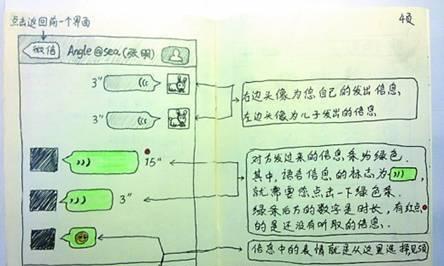 点击返回前一个界面
4页
微信
Angle@sea.(张明)
3"
3"
右边头像为您自己的发出信息,
左边头像为儿子发出的信息
15"
3"
对方发过来的信息条为绿色.
其中,语音信息的标志为
就需要您点击一下绿色条.
绿条后方的数字是时长,有红点
的是还没有听取的信息.
信息中的表情就是从这里选择